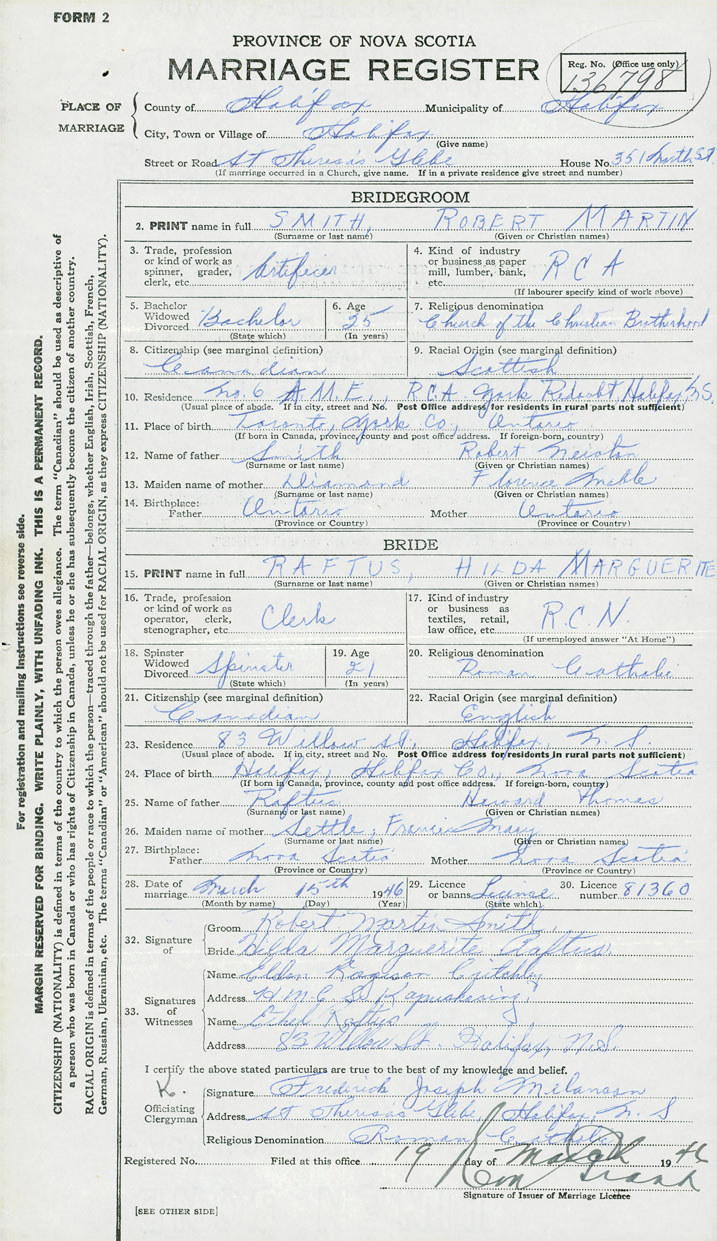 FORM 2
PROVINCE OF NOVA SCOTIA
MARRIAGE REGISTER
Reg. No. (Office use only)
136798
PLACE OF MARRIAGE
County of Halifax Municipality of Halifax
City, Town or Village of Halifax
(Give name)
Street or Road St Theresa's Glebe House No. 351 North St.
(If marriage occurred in a Church, give name. If in a private residence give street and number)
BRIDEGROOM
2. PRINT name in full SMITH, ROBERT MARTIN
(Surname or last name) (Given or Christian names)
3. Trade, profession or kind of work as spinner, grader, clerk, etc. Artificer
4. Kind of industry or business as paper mill, lumber, bank, etc. R C A
(If labourer specify kind of work above)
5. Bachelor Widowed Divorced Bachelor
(State which)
6. Age 25
(In years)
7. Religious denomination
Church of the Christian Brotherhood
8. Citizenship (see marginal definition)
Canadian
9. Racial Origin (see marginal definition)
Scottish
10. Residence No. 6 A.M.E., R.C.A York Redoubt, Halifax, N.S.
(Usual place of abode. If in city, street and No. Post Office address for residents in rural parts not sufficient)
11. Place of birth Toronto, York Co., Ontario
(If born in Canada, province, county and post office address. If foreign-born, country)
12. Name of father Smith Robert Newton
(Surname or last name) (Given or Christian names)
13. Maiden name of mother Diamond Florence Mable
(Surname or last name) (Given or Christian names)
14. Birthplace: Father Ontario Mother Ontario
(Province or Country) (Province or Country)
BRIDE
15. PRINT name in full RAFTUS, HILDA MARGUERITE
(Surname or last name) (Given or Christian names)
16. Trade, profession or kind of work as operator, clerk, stenographer, etc. Clerk
17. Kind of industry or business as textiles, retail, law office, etc. R.C.N.
(If unemployed answer "At Home")
18. Spinster Widowed Divorced Spinster
(State which)
19. Age 21
(In years)
20. Religious denomination
Roman Catholic
21. Citizenship (see marginal definition)
Canadian
22. Racial Origin (see marginal definition)
English
23. Residence 83 Willow St., Halifax, N.S.
(Usual place of abode. If in city, street and No. Post Office address for residents in rural parts not sufficient)
24. Place of birth Halifax, Halifax Co., Nova Scotia
(If born in Canada, province, county and post office address. If foreign-born, country)
25. Name of father Raftus Howard Thomas
(Surname or last name) (Given or Christian names)
26. Maiden name of mother Settle, Francis Mary
(Surname or last name) (Given or Christian names)
27. Birthplace: Father Nova Scotia Mother Nova Scotia
(Province or Country) (Province or Country)
28. Date of marriage March 15th 1946
(Month by name) (Day) (Year)
29. Licence or banns License
(State which)
30. Licence number 81360
32. Signature of
Groom Robert Martin Smith
Bride Hilda Marguerite Raftus
33. Signatures of Witnesses
Name Eldon Critchley
Address H.M.C.S. Kapuskasing
Name Ethel Raftus
Address 83 Willow St. Halifax, N.S.
I certify the above stated particulars are true to the best of my knowledge and belief.
K.
Officiating Clergyman
Signature Frederick Joseph Melanson
Address St Theresa's Glebe, Halifax, N.S
Religious Denomination Roman Catholic
Registered No. Filed at this office 19 day of March 1946
Signature of Issuer of Marriage Licence
[SEE OTHER SIDE]
For registration and mailing instructions see reverse side.
MARGIN RESERVED FOR BINDING. WRITE PLAINLY, WITH UNFADING INK. THIS IS A PERMANENT RECORD.
CITIZENSHIP (NATIONALITY) is defined in terms of the country to which the person owes allegiance. The term "Canadian" should be used as descriptive of
a person who was born in Canada or who has rights of Citizenship in Canada, unless he or she has subsequently become the citizen of another country.
RACIAL ORIGIN is defined in terms of the people or race to which the person—traced through the father—belongs, whether English, Irish, Scottish, French,
German, Russian, Ukrainian, etc. The terms "Canadian" or "American" should not be used for RACIAL ORIGIN, as they express CITIZENSHIP (NATIONALITY).